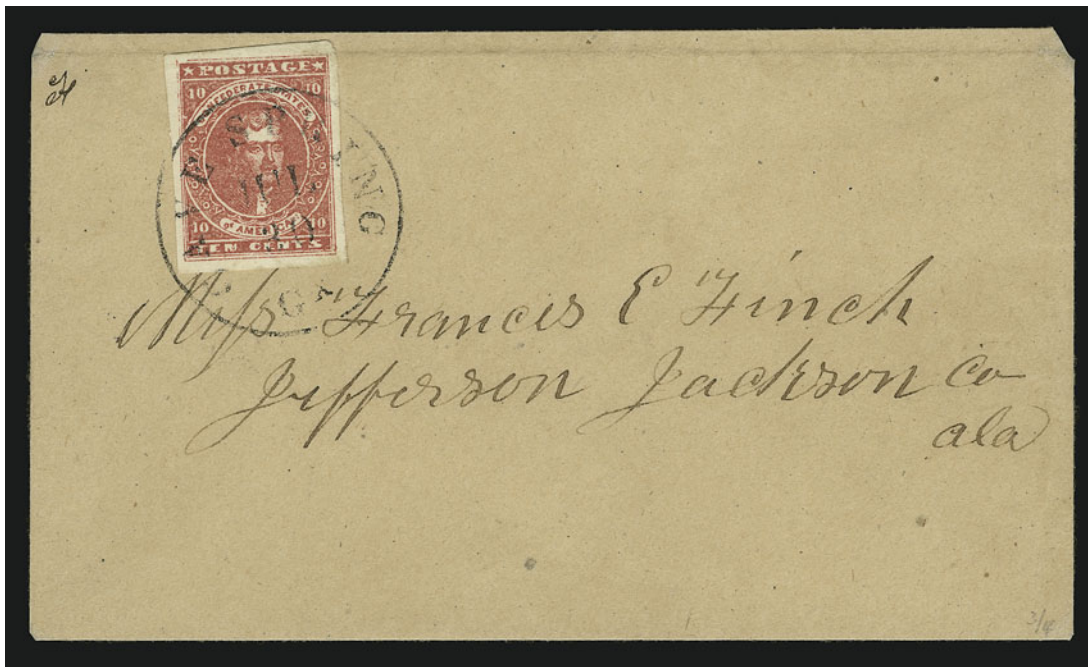 ★ POSTAGE ★
10 10
CONFEDERATE STATES
OF AMERICA
10 10
TEN CENTS
AVE SPRING
JUL
GA
Miss Francis E Finch
Jefferson Jackson Co
ala
3/4